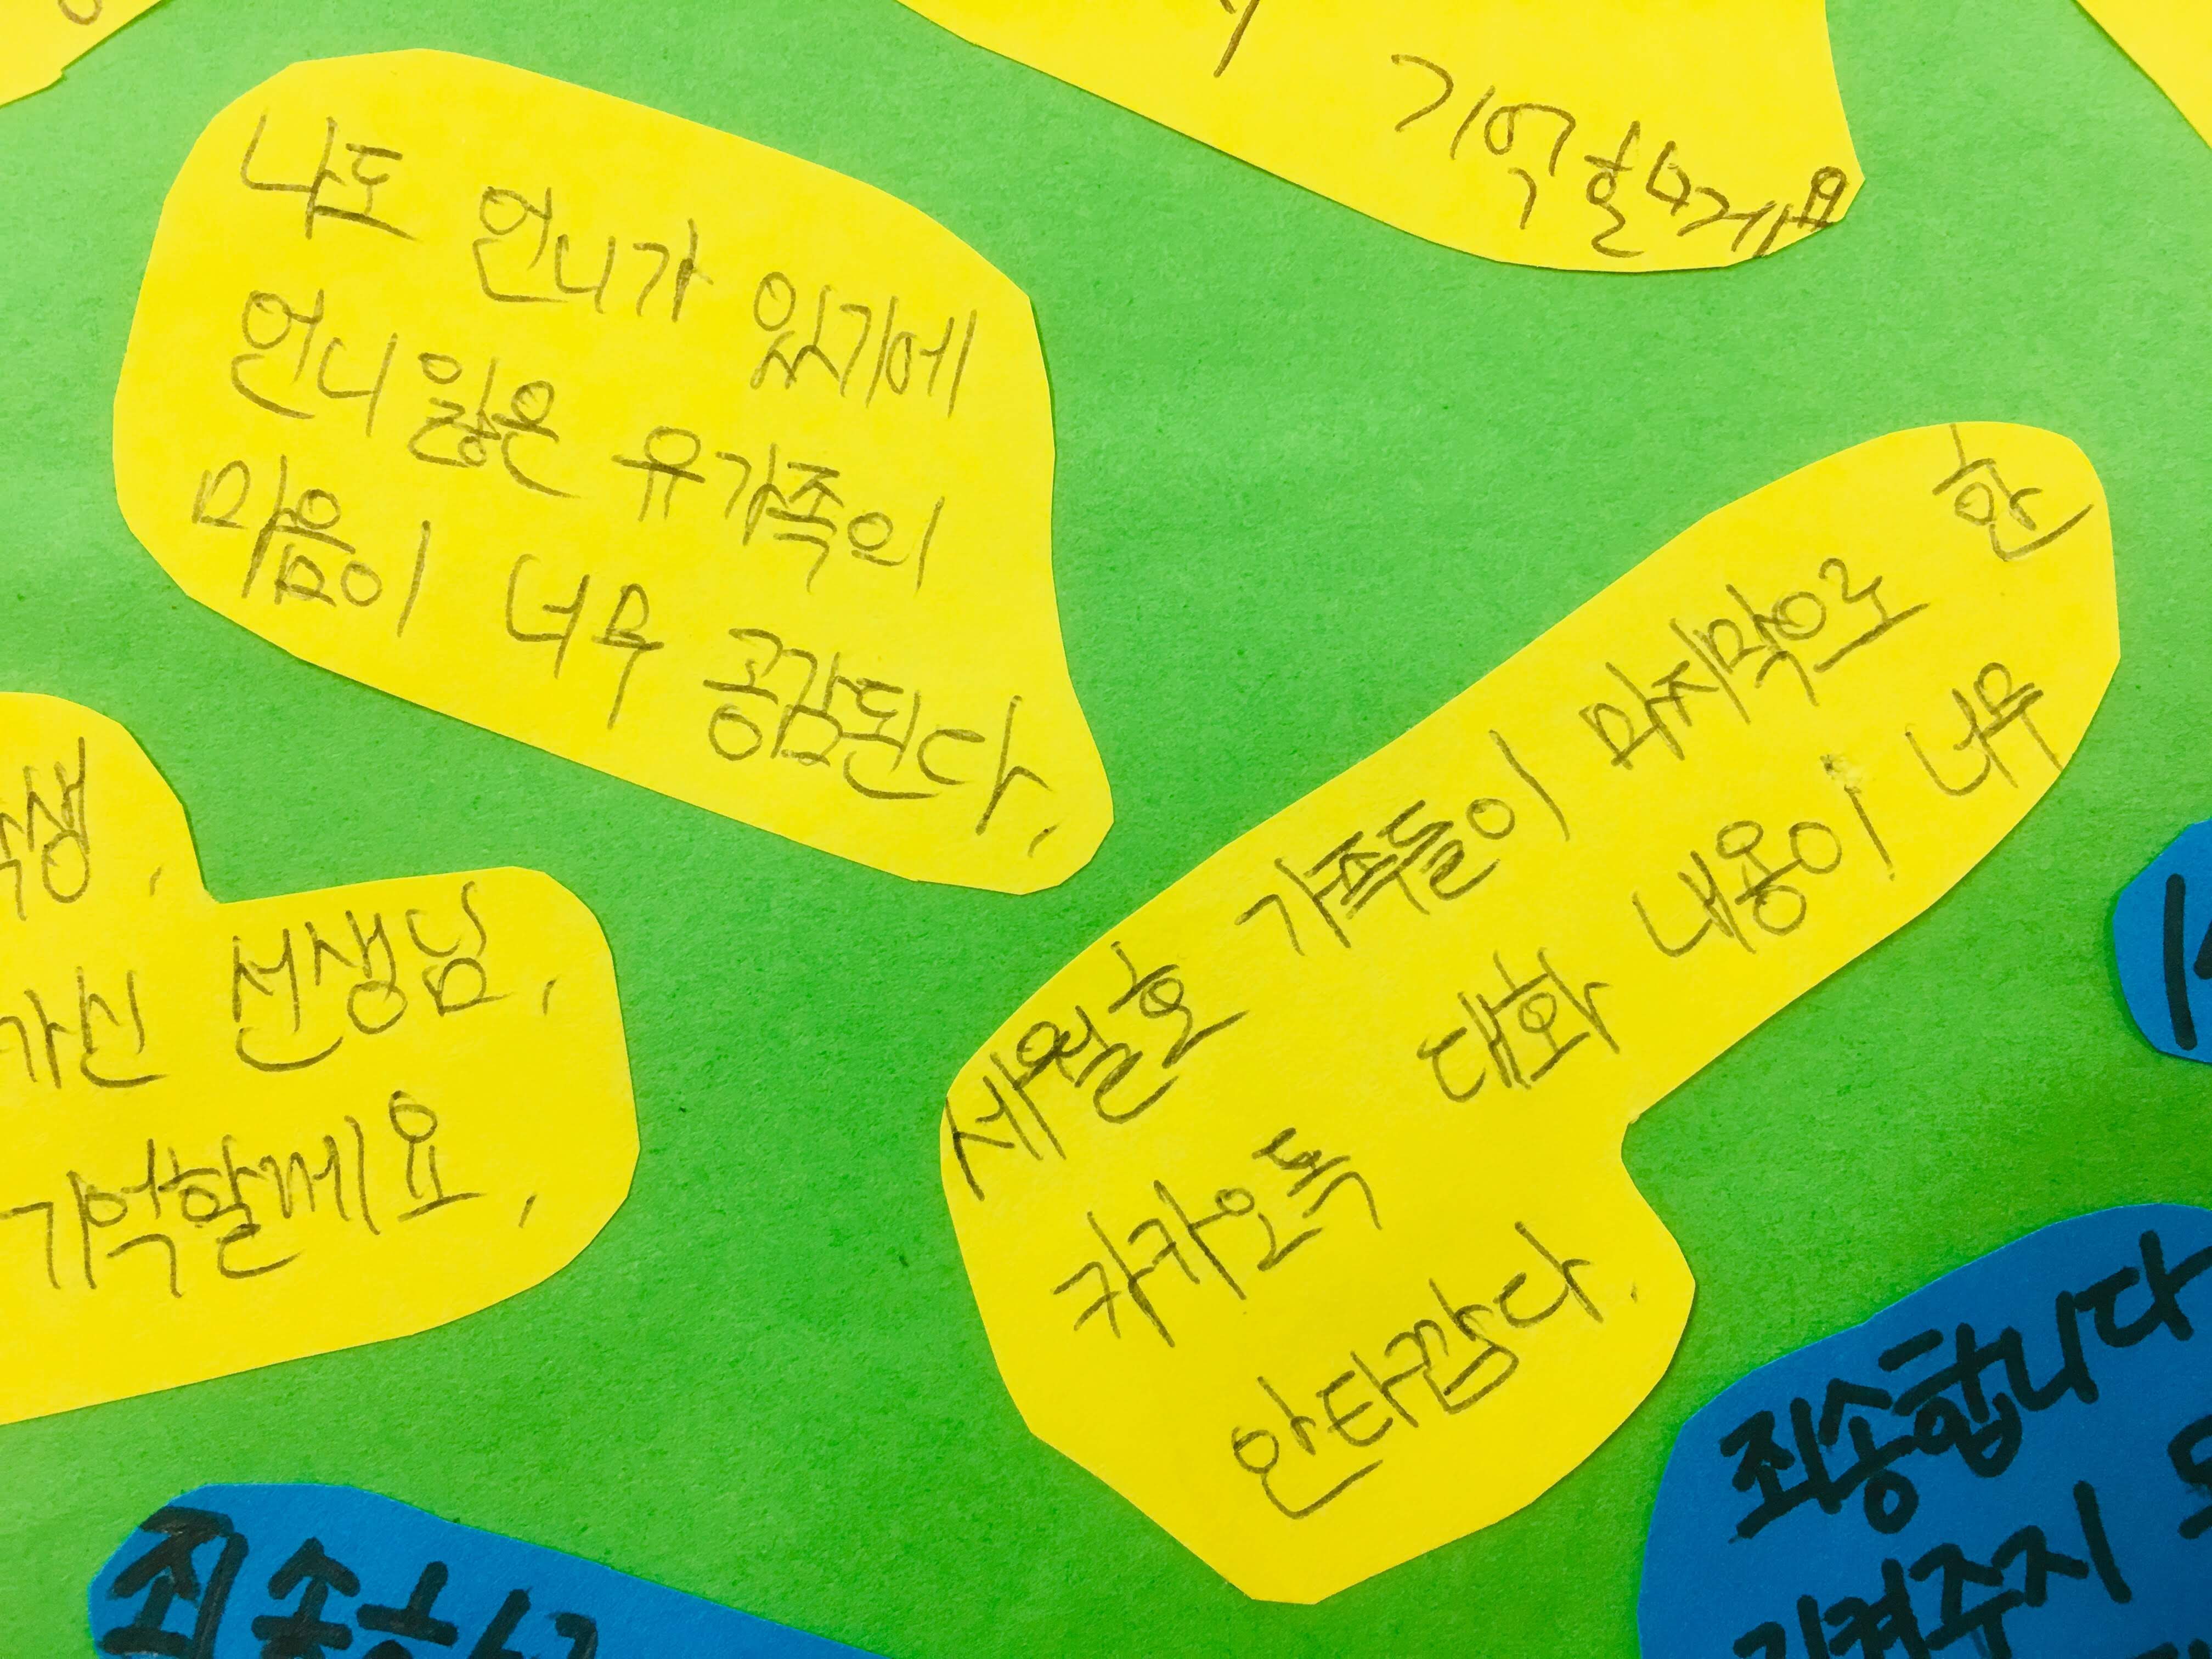 기억할게요
나도 언니가 있기에
언니 잃은 유가족의
마음이 너무 공감된다.
세월호 가족들이 마지막으로 한
카카오톡 대화 내용이 너무
안타깝다.
가신 선생님,
기억할께요.
죄송합니다
지켜주지